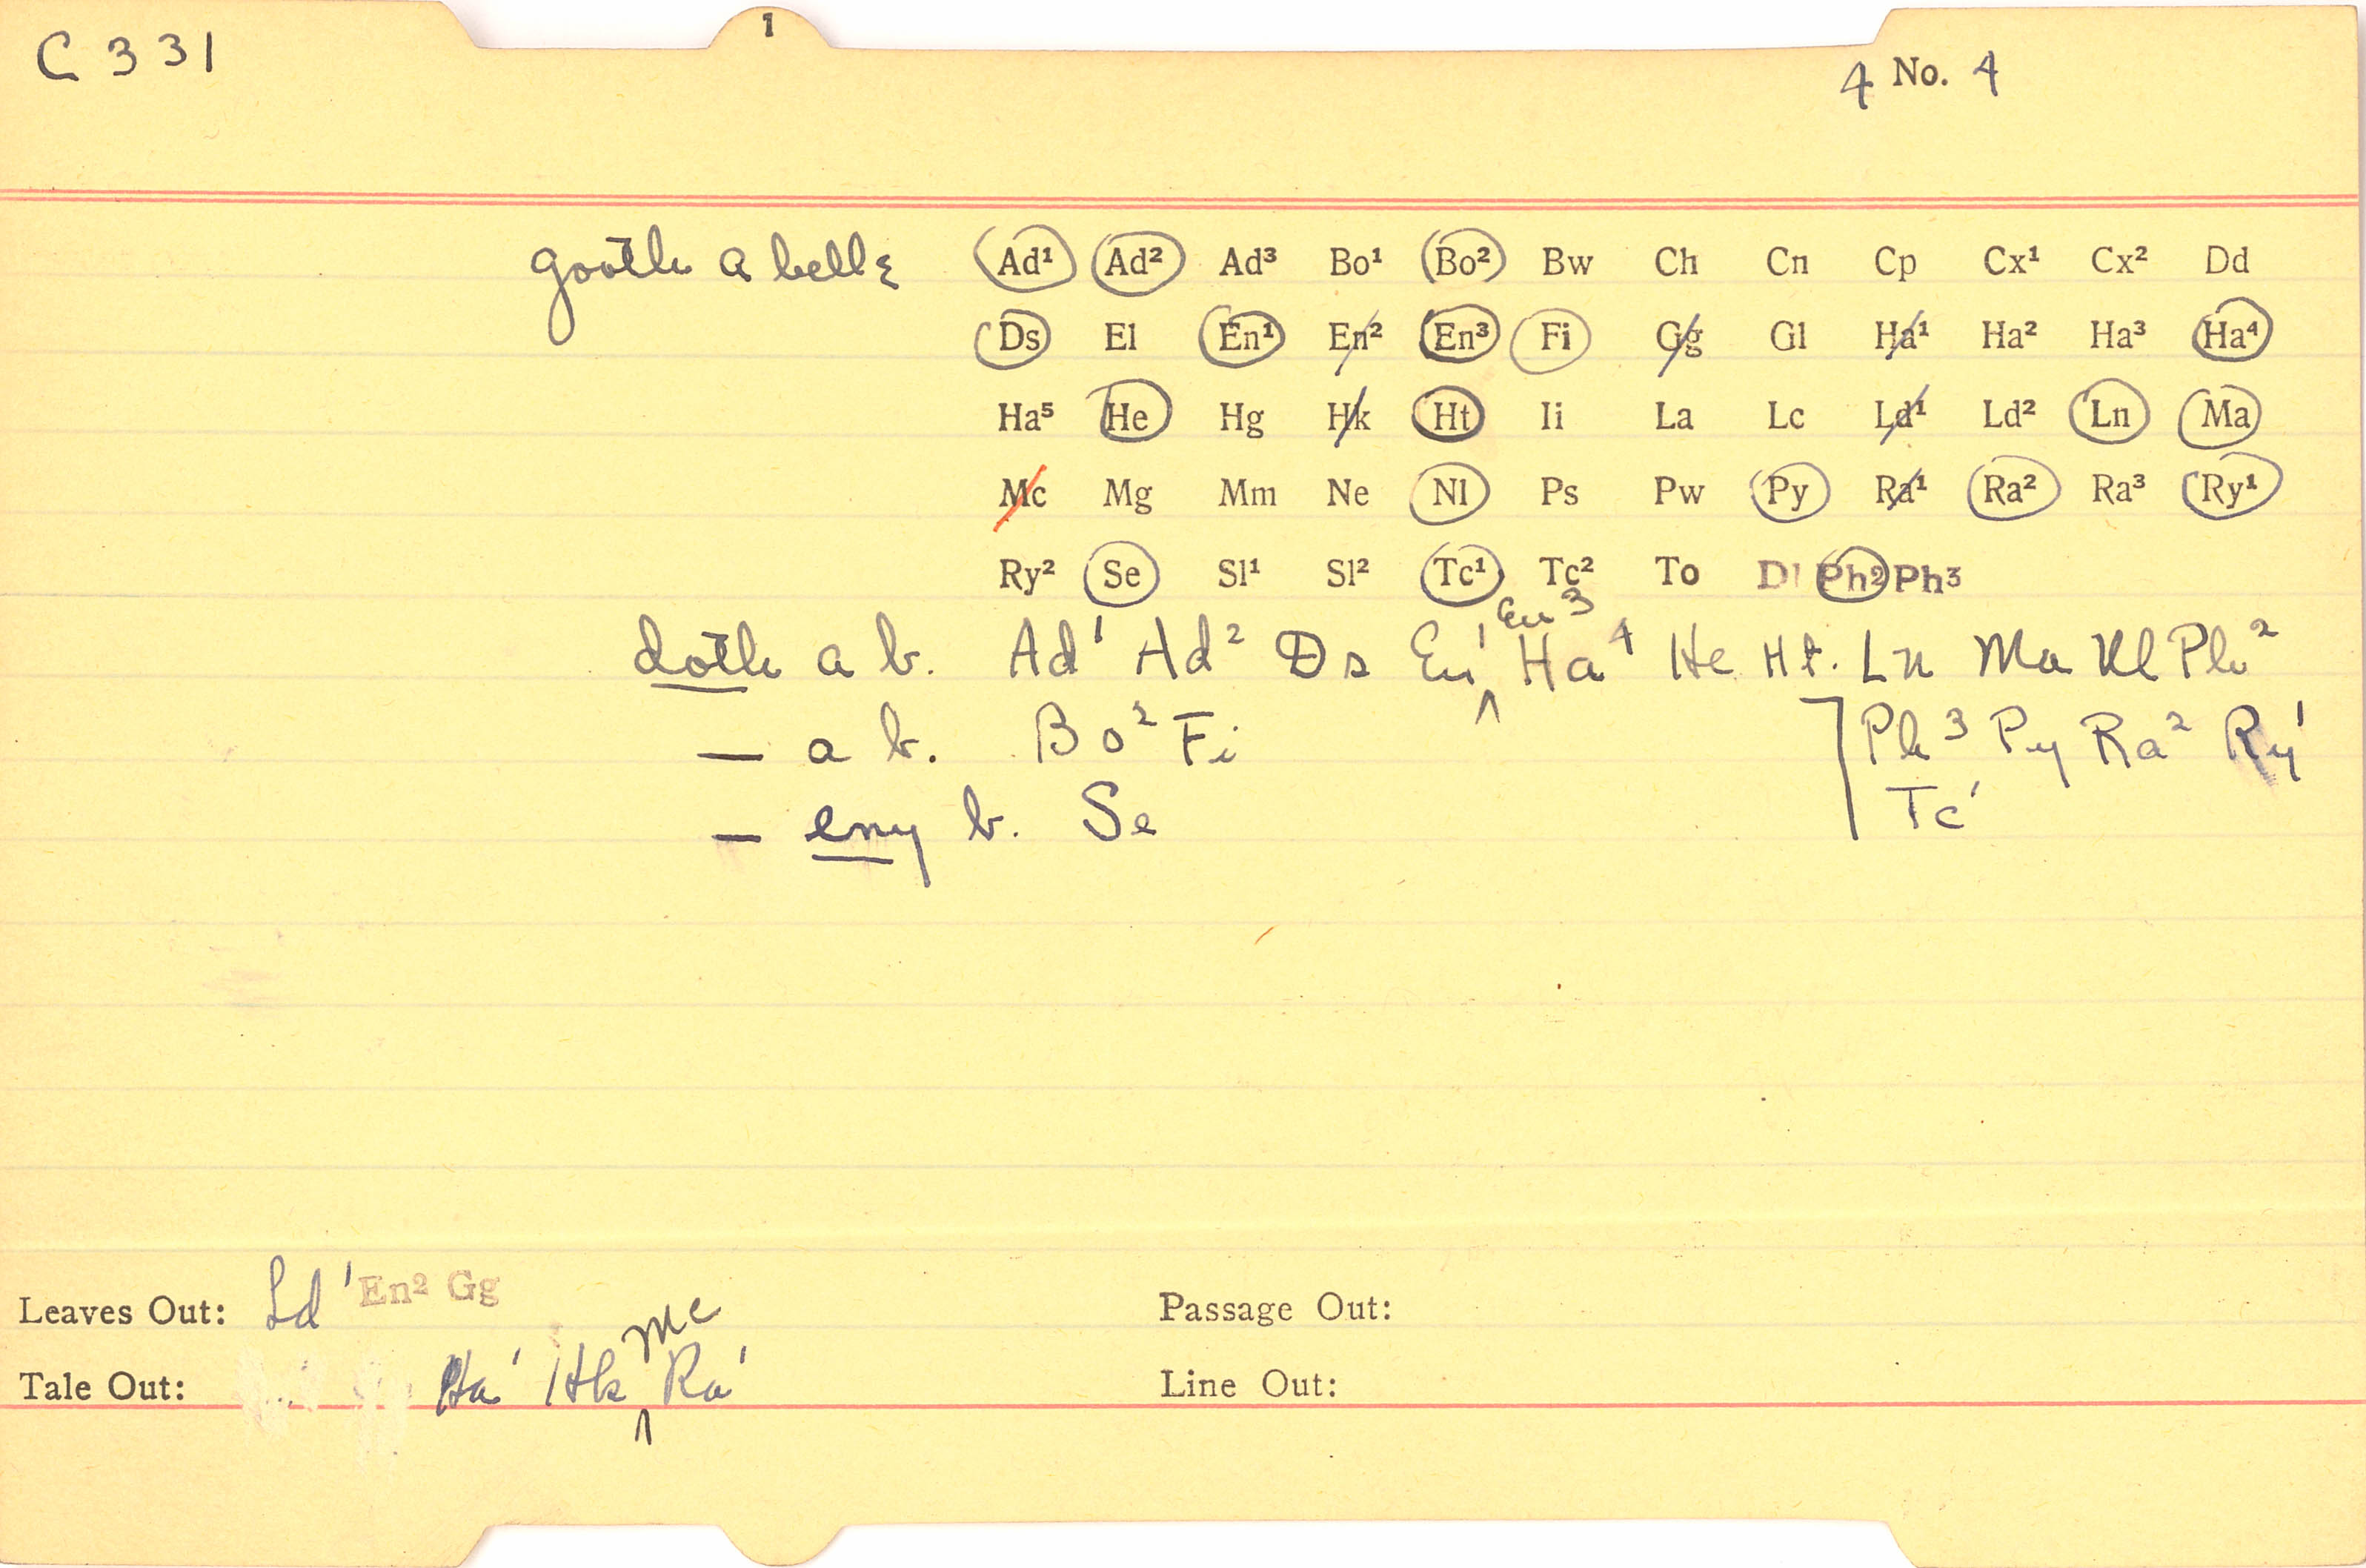 1
C 331
4 No. 4
gooth a belle Ad¹ Ad² Ad³ Bo¹ Bo² Bw Ch Cn Cp Cx¹ Cx² Dd
Ds El En¹ En² En³ Fi Gg Gl Ha¹ Ha² Ha³ Ha⁴
Ha⁵ He Hg Hk Ht Ii La Lc Ld¹ Ld² Ln Ma
Mc Mg Mm Ne Nl Ps Pw Py Ra¹ Ra² Ra³ Ry¹
Ry² Se Sl¹ Sl² Tc¹ Tc² To Dl Ph² Ph³
doth a b. Ad¹ Ad² Ds En¹ En³ Ha⁴ He Ht. Ln Ma Nl Ph²
— a b. Bo² Fi ] Ph³ Py Ra² Ry¹
— eny b. Se Tc¹
Leaves Out: Ld¹ En² Gg Passage Out:
Tale Out: Ha¹ Hk Mc Ra¹ Line Out: